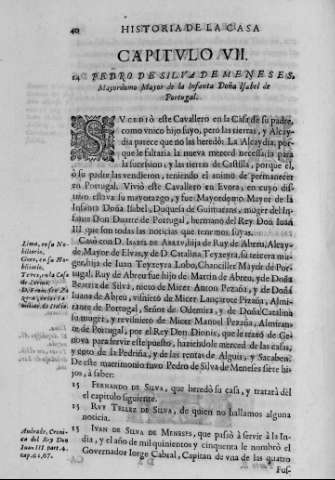 40 HISTORIA DE LA CASA
CAPITVLO VII.
14 PEDRO DE SILVA DE MENESES,
Mayordomo Mayor de la Infanta Doña Isabel de
Portugal.
SVCEDIÒ este Cavallero en la Casa de su padre,
como vnico hijo suyo, pero las tierras, y Alcay-
dia parece que no las heredò: La Alcaydia, por-
que le faltaria la nueva merced necessaria para
la sucession; y las tierras de Castilla, porque el,
ò su padre las vendieron, teniendo el animo de permanecer
en Portugal. Viviò este Cavallero en Evora, en cuyo dis-
trito estaba su mayorazgo, y fue Mayordomo Mayor de la
Infanta Doña Isabel, Duquesa de Guimaraes, muger del In-
fante Don Duarte de Portugal, hermano del Rey Don Iuan
III. que son todas las noticias que tenemos suyas.
Casò con D. ISABEL DE ABREV, hija de Ruy de Abreu, Alcay-
de Mayor de Elvas, y de D. Catalina Teyxeyra, su tercera mu-
ger, hija de Iuan Teyxeyra Lobo, Chanciller Mayor de Por-
tugal. Ruy de Abreu fue hijo de Martin de Abreu, y de Doña
Beatriz de Silva, nieto de Micer Anton Pezaña, y de Doña
de Abreu, visnieto de Micer Lançarote Pezaña, Almi-
rante de Portugal, Señor de Odemira, y de Doña Catalina
su muger, y revisnieto de Micer Manuel Pezaña, Almiran-
te de Portugal, por el Rey Don Dionis, que le traxo de Ge-
nova para servir este puesto, haziendole merced de las casas,
y coto de la Pedriña, y de las rentas de Alguis, y Sacaben.
De este matrimonio tuvo Pedro de Silva de Meneses siete hi-
jos, à saber:
15 FERNANDO DE SILVA, que heredò su casa, y tratarà del
el capitulo siguiente.
15 RVY TELLEZ DE SILVA, de quien no hallamos alguna
noticia.
15 IVAN DE SILVA DE MENESES, que passò à servir à la In-
dia, y el año de mil quinientos y cinquenta le nombrò el
Governador Iorge Cabral, Capitan de vna de las quatro
Fus-
Lima, en su No-
biliario.
Goes, en su No-
biliario.
Torres, en la Casa
de
Andrade, Croni-
ca del Rey Don
Iuan III. part. 4.
cap. 61, 67.